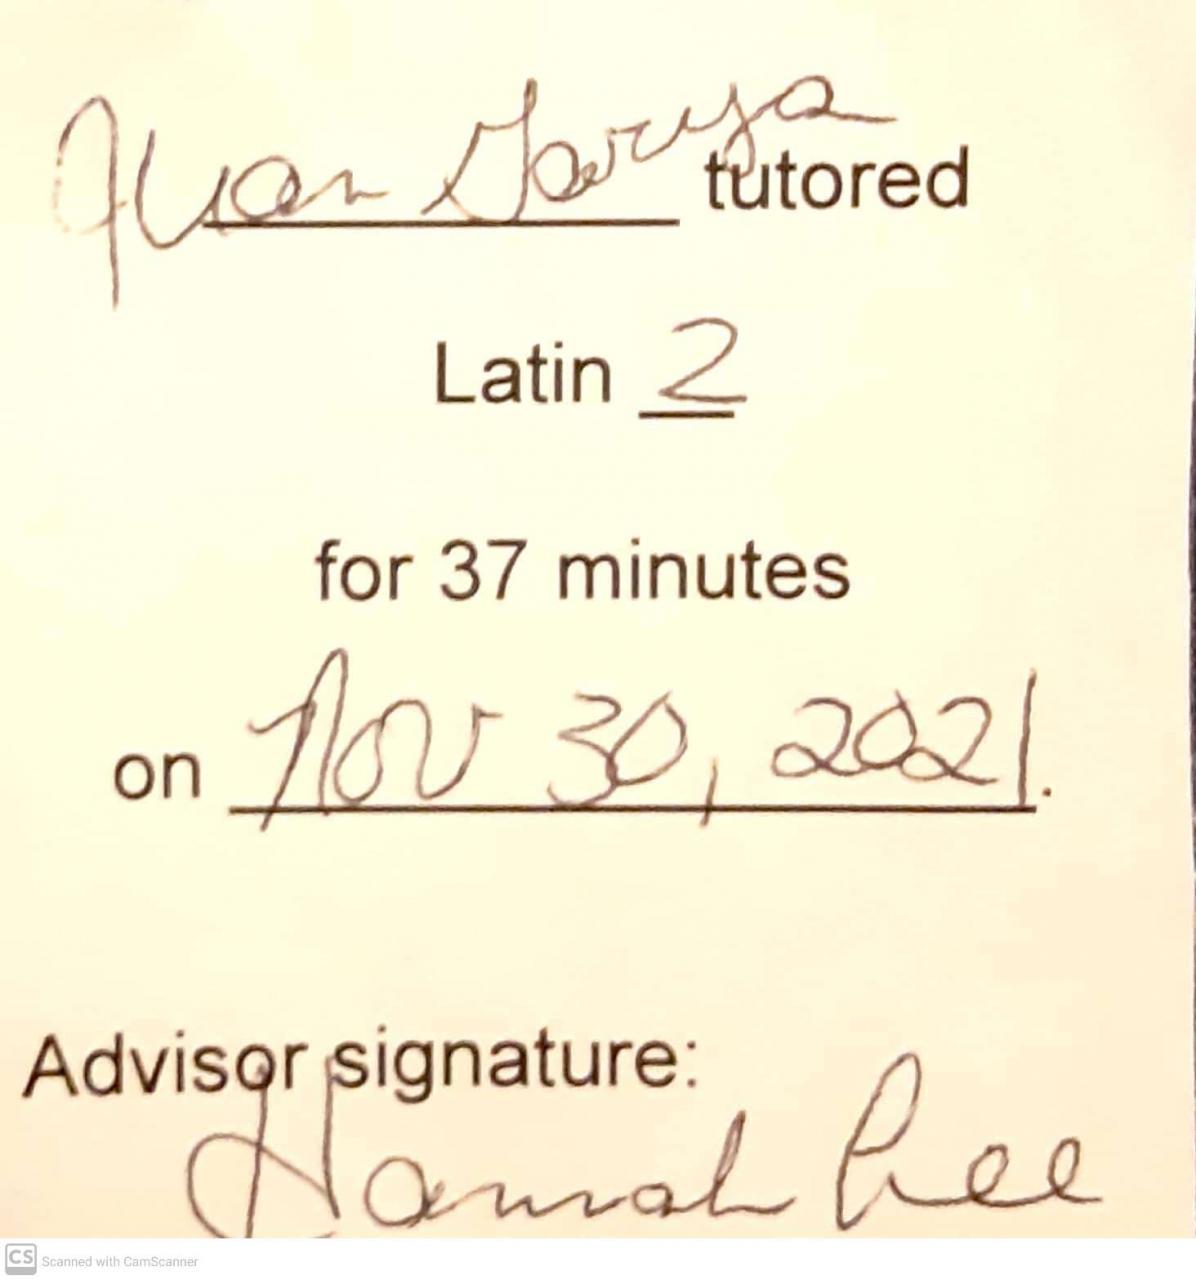 Juan Garya tutored
Latin 2
for 37 minutes
on Nov 30, 2021.
Advisor signature:
Hannah Lee
CS Scanned with CamScanner